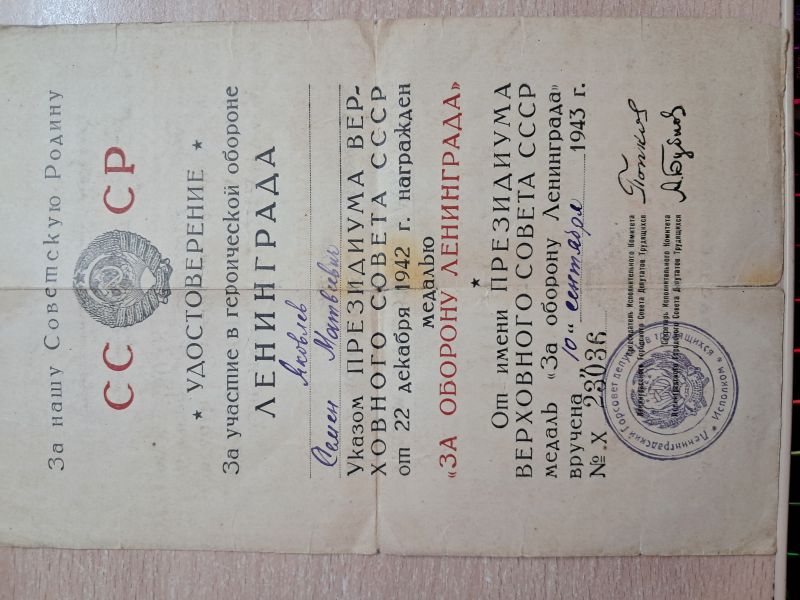 За нашу Советскую Родину
СС СР
★ УДОСТОВЕРЕНИЕ ★
За участие в героической обороне
ЛЕНИНГРАДА
Яковлев
Семен Матвеевич
Указом ПРЕЗИДИУМА ВЕР-
ХОВНОГО СОВЕТА СССР
от 22 декабря 1942 г. награжден
медалью
«ЗА ОБОРОНУ ЛЕНИНГРАДА»
★
От имени ПРЕЗИДИУМА
ВЕРХОВНОГО СОВЕТА СССР
медаль «За оборону Ленинграда»
вручена „10“ сентября 1943 г.
№ Х 28036
Председатель Исполнительного Комитета
Ленинградского Городского Совета Депутатов Трудящихся
Попков
Секретарь Исполнительного Комитета
Ленинградского Городского Совета Депутатов Трудящихся
А. Бубнов
Ленинградский Горсовет депутатов трудящихся ★ Исполком ★